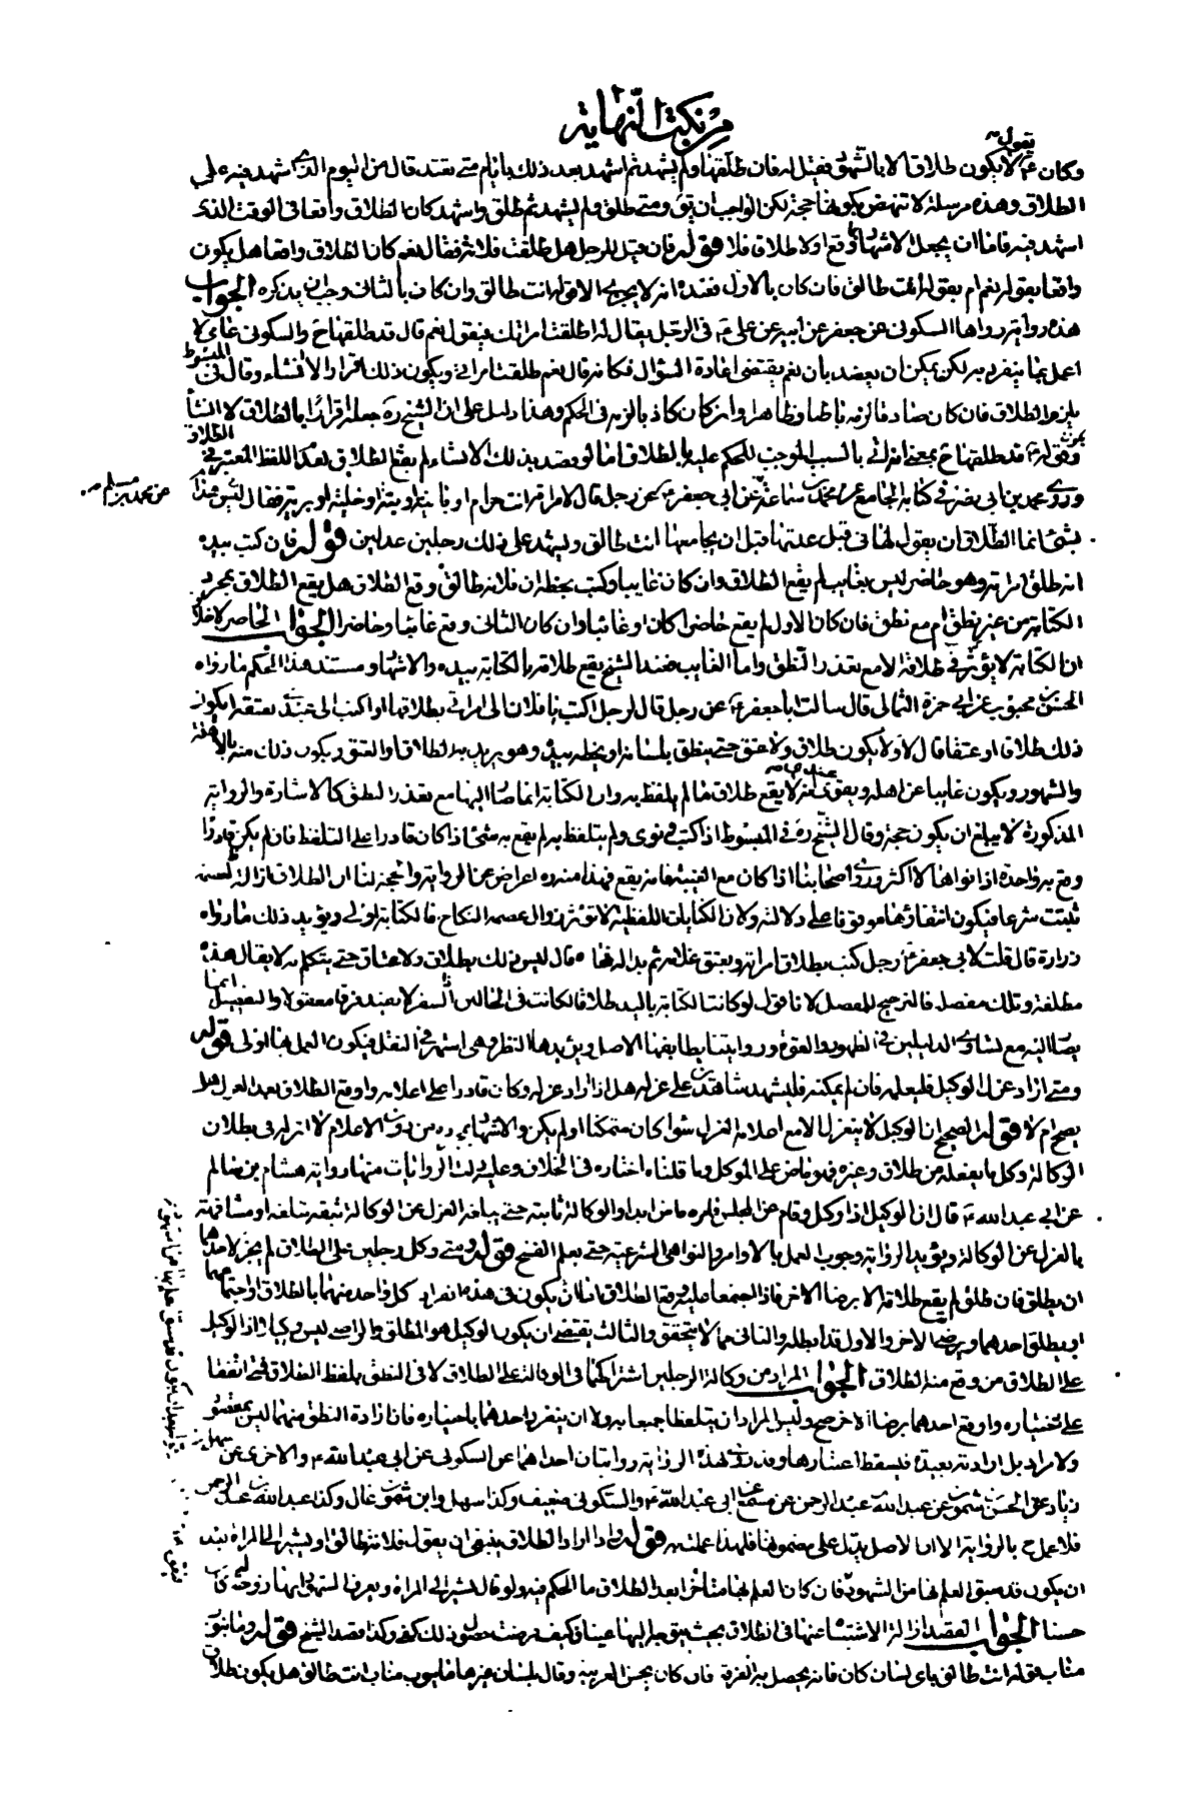 من نكت النهاية
يقول
وكان ع لا يكون طلاق الا بالشهود فقيل له فان طلقها ولم يشهد ثم اشهد بعد ذلك بايام متى تعتد قال من اليوم الذي اشهد فيه على
الطلاق وهذه مرسلة لا تنهض بكونها حجة لكن الواجب ان يق ومتى طلق ولم يشهد ثم طلق واشهد كان الطلاق واقعا في الوقت الذي
اشهد فيه فاما ان يجعل الاشهاد وقع اولا طلاق فلا قوله فان قيل للرجل هل طلقت فلانة فقال نعم كان الطلاق واقعا هل يكون
واقعا بقوله نعم ام بقوله انت طالق فان كان بالاول فعنده انه لا يجزي الا قوله انت طالق وان كان بالثاني وجب ان يذكره الجواب
هذه رواية رواها السكوني عن جعفر عن ابيه عن علي ع في الرجل يقال له اطلقت امراتك فيقول نعم قال قد طلقها ح والسكوني عامي لا
اعمل بما ينفرد به لكن يمكن ان يعضد بان نعم يقتضي اعادة السؤال فكانه قال نعم طلقت امراتي ويكون ذلك اقرارا لا انشاء وقال في المبسوط
يلزمه الطلاق فان كان صادقا لزمه باطنا وظاهرا وان كان كاذبا لزمه في الحكم وهذا دليل على ان الشيخ ره جعله اقرارا بالطلاق لا انشاء
وقوله ع قد طلقها ح بمعنى انه اتى بالسبب الموجب للحكم عليه بالطلاق اما لو قصد بذلك الانشاء لم يقع الطلاق لعدم اللفظ المعتبر في الطلاق
وروى محمد بن ابي نصر في كتابه الجامع عن محمد بن سماعة عن ابي جعفر ع عن رجل قال لامراته انت حرام او باينة او بتة او خلية او برية فقال ليس هذا
عن محمد بن مسلم
بشيء انما الطلاق ان يقول لها في قبل عدتها قبل ان يجامعها انت طالق ويشهد على ذلك رجلين عدلين قوله فان كتب بيده
انه طلق امراته وهو حاضر ليس بغايب لم يقع الطلاق وان كان غايبا وكتب بخطه ان فلانة طالق وقع الطلاق هل يقع الطلاق بمجرد
الكتابة من غير نطق ام مع نطق فان كان الاول لم يقع حاضرا كان او غائبا وان كان الثاني وقع غائبا وحاضرا الجواب الحاضر لا خلاف
ان الكتابة لا يؤثر في طلاقه الا مع تعذر النطق واما الغايب فعند الشيخ يقع طلاقه بالكتابة بيده والاشهاد ومستند هذا الحكم ما رواه
الحسن بن محبوب عن ابي حمزة الثمالي قال سالت ابا جعفر ع عن رجل قال لرجل اكتب يا فلان الى امراتي بطلاقها او اكتب الى عبدي بعتقه ايكون
ذلك طلاقا او عتقا فقال لا ولا يكون طلاق ولا عتق حتى ينطق بلسانه او يخطه بيده وهو يريد به الطلاق او العتق ويكون ذلك منه بالاهلة
والشهور ويكون غايبا عن اهله ويقوى عندي انه لا يقع طلاق ما لم يلفظ به وان الكتابة انما صار اليها مع تعذر النطق كالاشارة والرواية
المذكورة لا يبلغ ان يكون حجة وقال الشيخ ره في المبسوط اذا كتب ونوى ولم يتلفظ به لم يقع به شيء اذا كان قادرا على التلفظ فان لم يكن قادرا
وقع به واحدة اذا نواها لا اكثر وروى اصحابنا اذا كان مع الغيبة فانه يقع فهذا منه ره اعراض عن الرواية والحجة لنا ان الطلاق ازالة لعصمة
ثبتت شرعا فيكون انتفاؤها موقوفا على دلالته ولان الكنايات اللفظية لا تؤثر زوال عصمة النكاح فالكتابة اولى ويؤيد ذلك ما رواه
زرارة قال قلت لابي جعفر ع رجل كتب بطلاق امراته وبعتق غلامه ثم بدا له فمحاه قال ليس ذلك بطلاق ولا عتاق حتى يتكلم به لا يقال هذه
مطلقة وتلك مفصلة فالترجيح للمفصل لانا نقول لو كانت الكتابة باليد طلاقا لكانت في الحالين اذ السفر لا يفيد فرقا معقولا والتفصيل انما
يصار اليه مع تساوي الدليلين في الظهور والقوة وروايتنا يطابقها الاصل ويؤيدها النظر وهي اشهر في النقل فيكون العمل بها اولى قوله
ومتى اراد عزل الوكيل فليعلمه فان لم يمكنه فليشهد شاهدين على عزله هل اذا اراد عزله وكان قادرا على اعلامه واوقع الطلاق بعد العزل هل
يصح ام لا قوله الصحيح ان الوكيل لا ينعزل الا مع اعلامه العزل سوا كان متمكنا او لم يكن والاشهاد بمجرده من دون الاعلام لا اثر له في بطلان
الوكالة وكل ما يفعله من طلاق وغيره فهو ماض على الموكل وما قلناه اختاره في الخلاف وعليه دلت الروايات منها رواية هشام بن سالم
عن ابي عبد الله ع قال ان الوكيل اذا وكل وقام عن المجلس فامره ماض ابدا والوكالة ثابتة حتى يبلغه العزل عن الوكالة بثقة يبلغه او مشافهة
بالعزل عن الوكالة ويؤيد الرواية وجوب العمل بالاوامر والنواهي الشرعية حتى يعلم الفسخ قوله ومتى وكل رجلين على الطلاق لم يجز لاحدهما
ان يطلق فان طلق لم يقع طلاقه الا برضا الاخر فاذا اجتمعا عليه وقع الطلاق اما ان يكون في هذه انفراد كل واحد منهما بالطلاق او اجتماعهما
او يطلق احدهما ويرضى الاخر والاول قد ابطله والثاني مما لا يتحقق والثالث يقتضي ان يكون الوكيل هو المطلق والراضي ليس وكيلا اذ الوكيل
على الطلاق من وقع منه الطلاق الجواب المراد من وكالة الرجلين اشتراكهما في الوكالة على الطلاق لا في النطق بلفظ الطلاق فمتى اتفقا
على اختياره واوقع احدهما برضا الاخر صح وليس المراد ان يتلفظا جميعا به ولا ان ينفرد احدهما باختياره فان ارادة النطق منهما ليس بمقصود
ولا مراد بل ارادته بعيدة فيسقط اعتبارها وقد روى هذه الرواية روايتان احداهما عن السكوني عن ابي عبد الله ع والاخرى عن سهل بن
زياد عن الحسن بن شمون عن عبد الله بن عبد الرحمن عن مسمع عن ابي عبد الله ع والسكوني ضعيف وكذا سهل وابن شمون غال وكذا عبد الله بن عبد الرحمن
فلا عمل ح بالرواية الا ان الاصل يدل على مضمونها فلهذا عملت به قوله واذا اراد الطلاق ينبغي ان يقول فلانة طالق او يشير الى المراة بعد
ان يكون قد سبق العلم بها من الشهود فان كان العلم بها متاخرا بعد الطلاق ما الحكم فيه ولو قال يشير الى المراة ويعرف الشهود انها زوجته كان
حسنا الجواب القصد ازالة الاشتباه عنها في الطلاق بحيث يتوجه اليها عينا وكيف فرضت حصول ذلك كفى وكذا قصد الشيخ قوله وما ينوب
مناب قوله انت طالق باي لسان كان فانه يحصل به الفرقة فان كان يحسن العربية وقال بلسان غيرها ما ينوب مناب انت طالق هل يكون طلاق